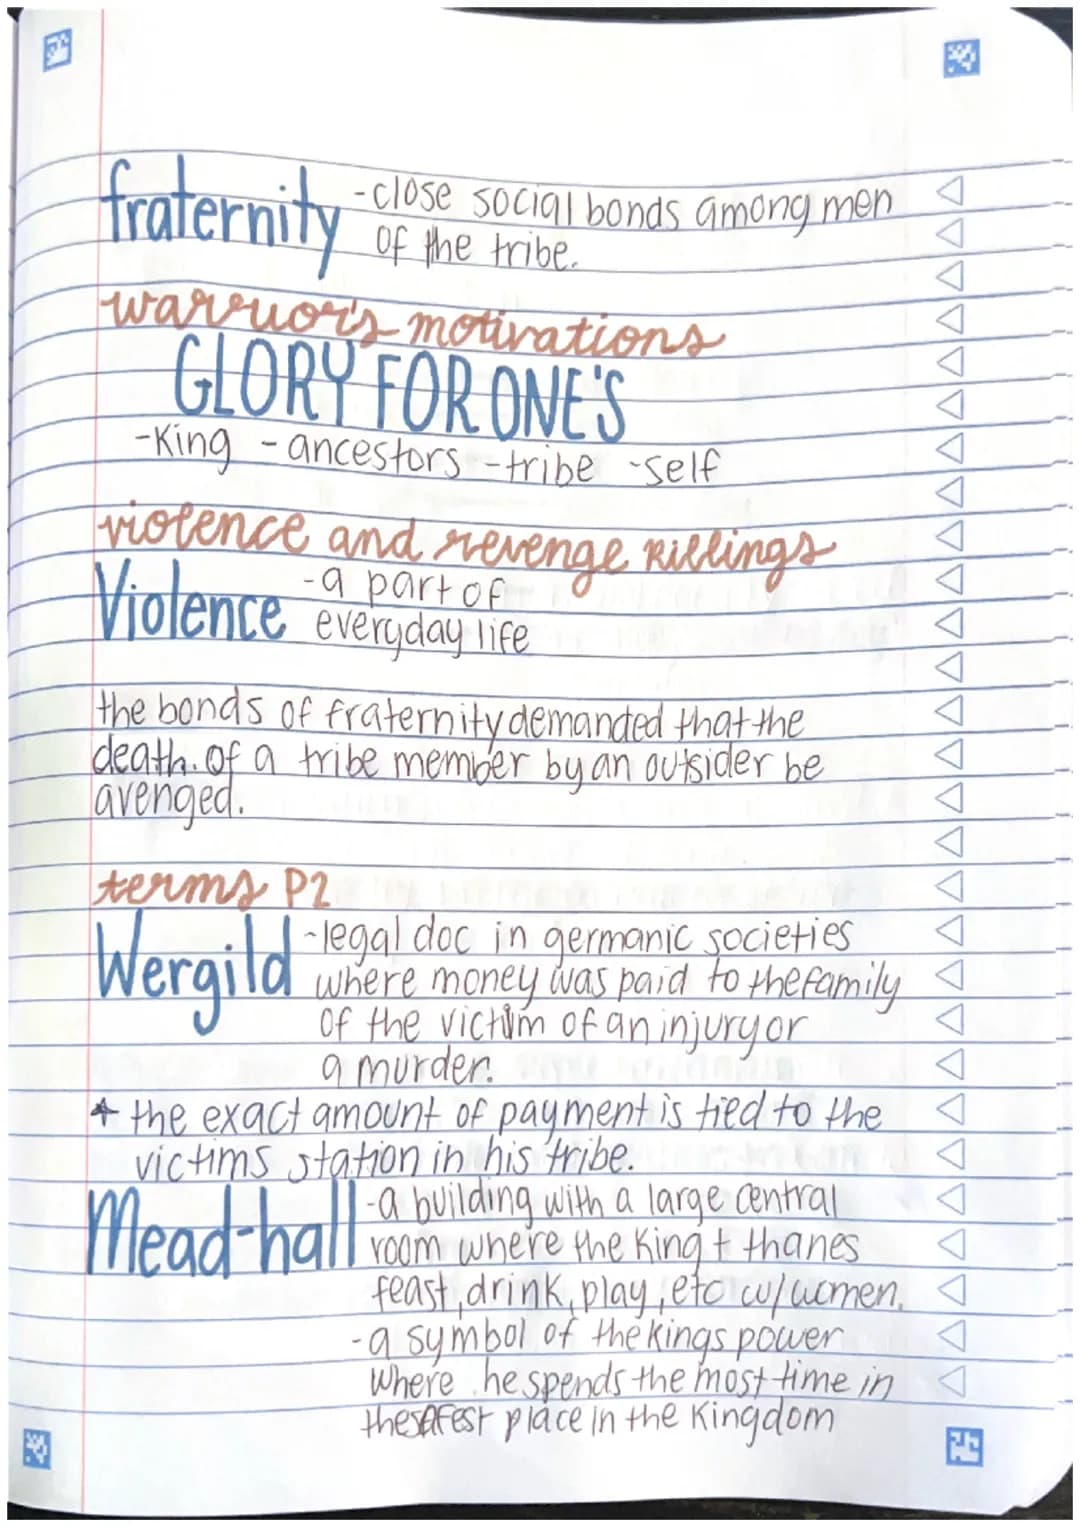 fraternity -close social bonds among men
of the tribe.
warruor's motivations
GLORY FOR ONE'S
-King -ancestors -tribe -self
violence and revenge killings
Violence -a part of
everyday life
the bonds of fraternity demanded that the
death. of a tribe member by an outsider be
avenged.
terms P2
Wergild -legal doc in germanic societies
where money was paid to the family
of the victim of an injury or
a murder.
* the exact amount of payment is tied to the
victims station in his tribe.
Mead-hall -a building with a large central
room where the King + thanes
feast, drink, play, etc w/ women.
-a symbol of the kings power
where he spends the most time in
the safest place in the Kingdom